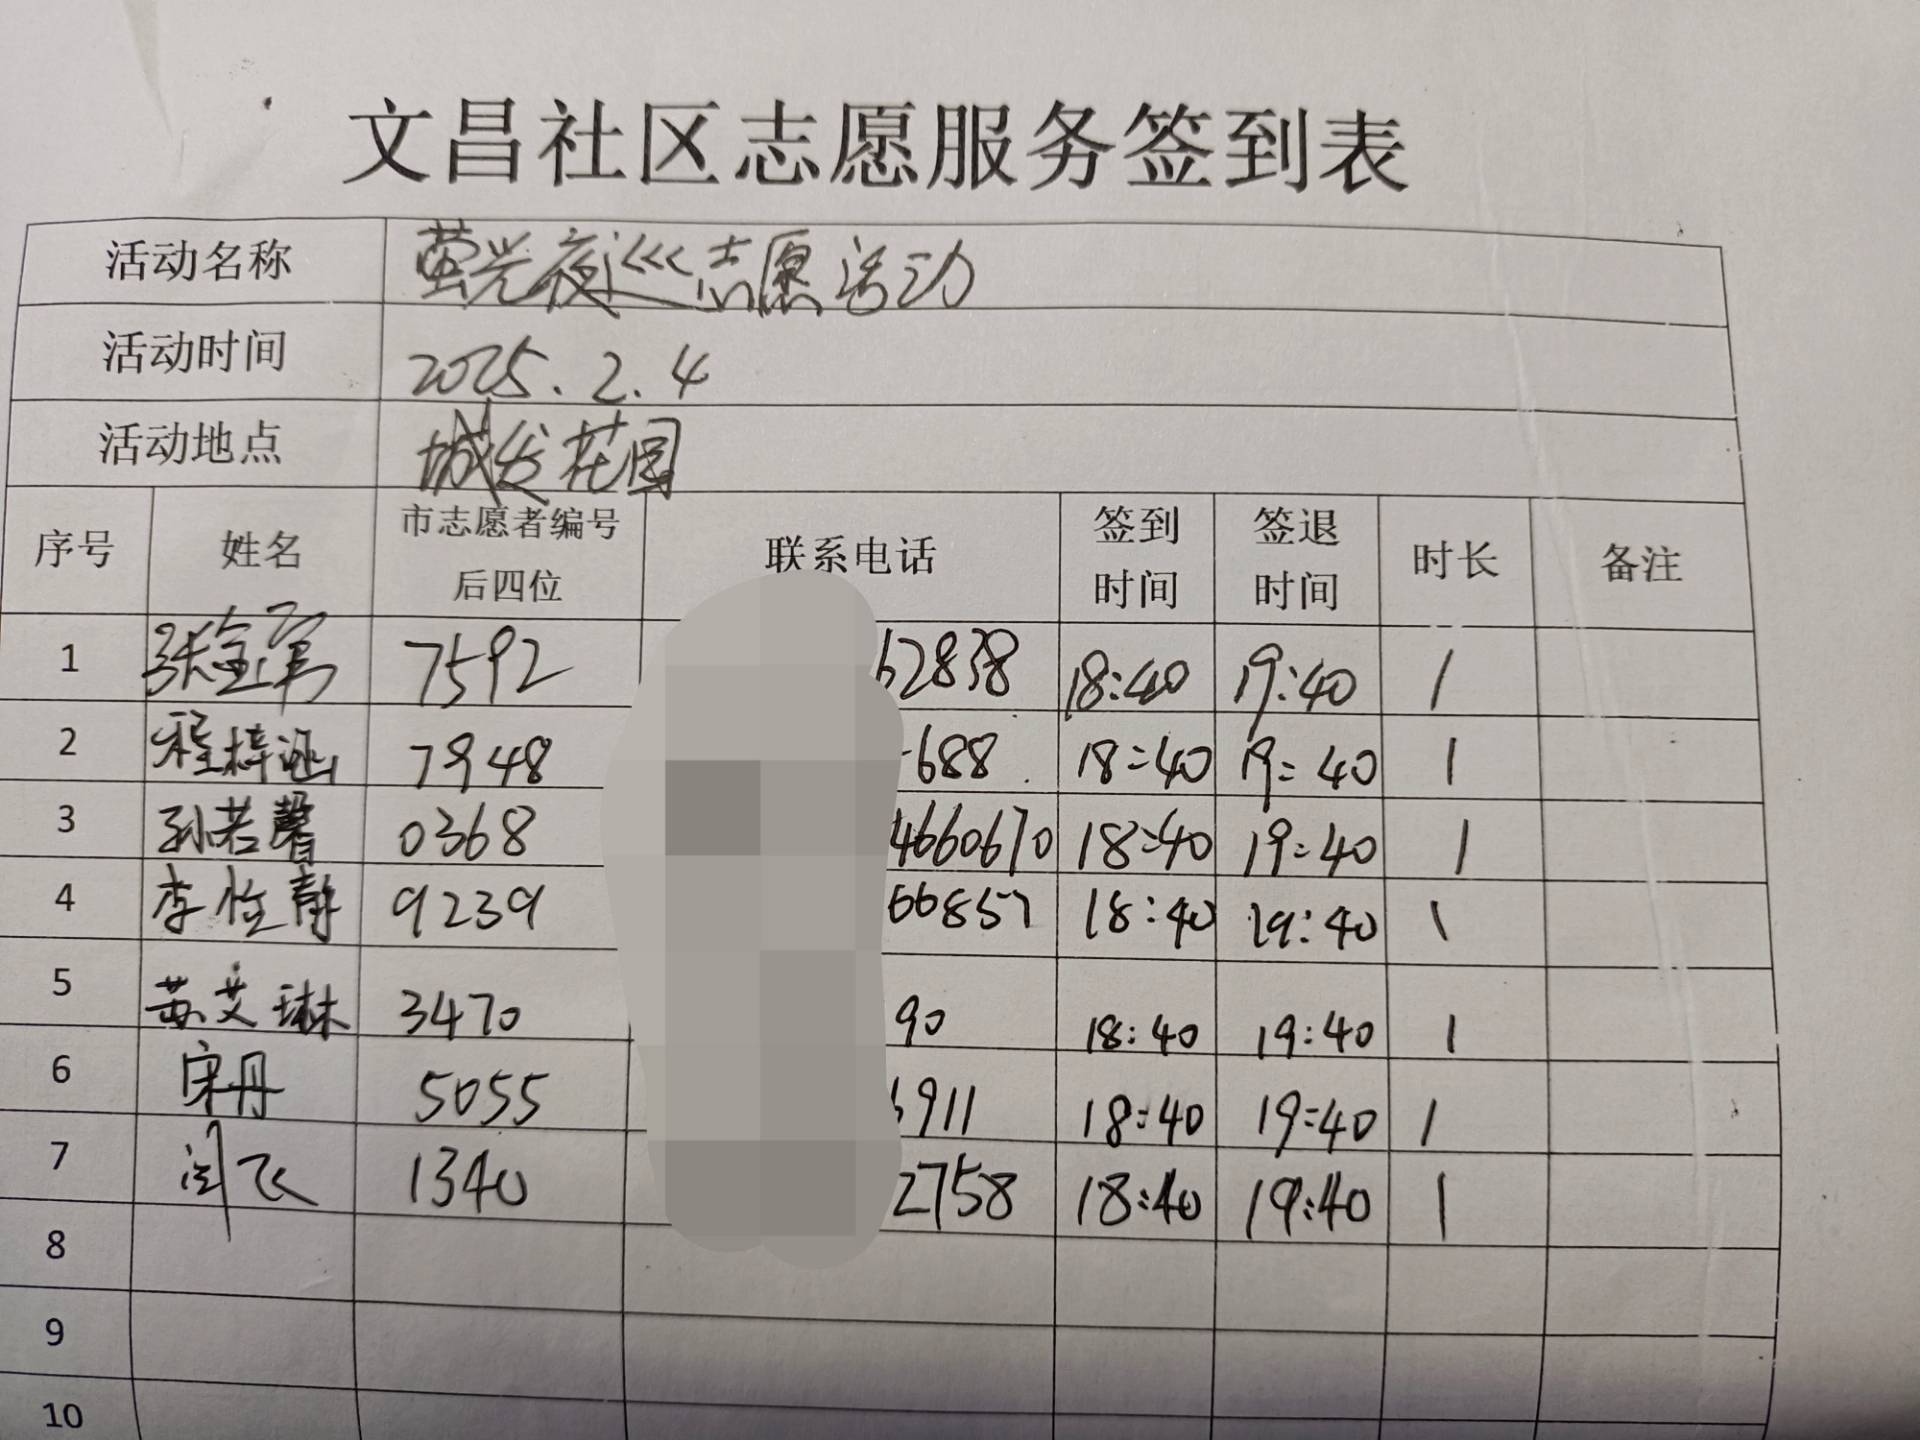 文昌社区志愿服务签到表
活动名称 萤光夜巡志愿活动
活动时间 2025.2.4
活动地点 城发花园
序号 姓名 市志愿者编号后四位 联系电话 签到时间 签退时间 时长 备注
1 张金军 7592 62838 18:40 19:40 1
2 程梓涵 7948 688 18:40 19:40 1
3 孙若馨 0368 4660670 18:40 19:40 1
4 李怡静 9239 66857 18:40 19:40 1
5 苏艾琳 3470 90 18:40 19:40 1
6 宋丹 5055 911 18:40 19:40 1
7 闫飞 1340 2758 18:40 19:40 1
8
9
10